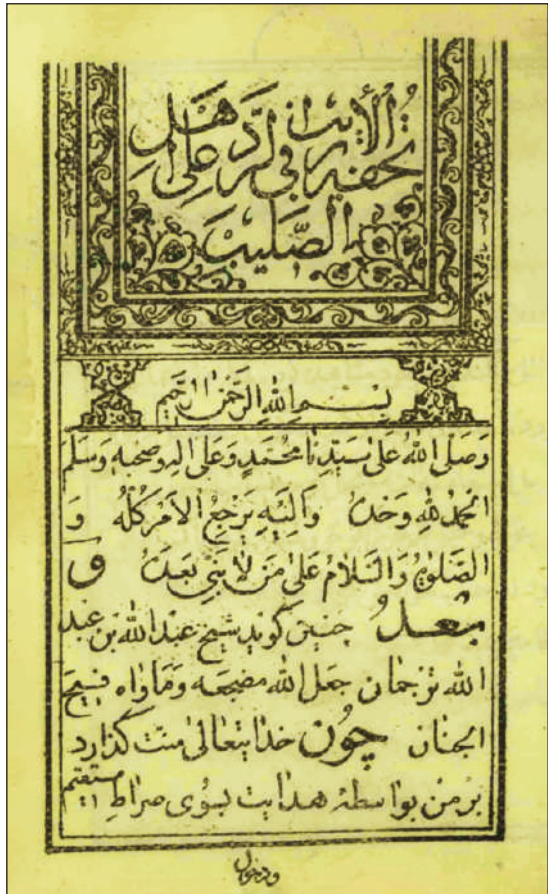 تحفه الأريب في الرد على اهل
الصليب
بِسْمِ اللهِ الرَّحْمٰنِ الرَّحِيمِ
وَصَلَّى اللهُ عَلىٰ سَيِّدِنَا مُحَمَّدٍ وَعَلىٰ الِهِ وَصَحْبِهِ وَسَلَّمَ
الحَمْدُ لِلّهِ وَحْدَهُ وَاِلَيْهِ يَرْجِعُ الاَمْرُ كُلُّهُ وَ
الصَّلوةُ وَالسَّلامُ عَلىٰ مَنْ لا نَبِيَّ بَعْدَهُ وَ
بَعْدُ چنین کوید شیخ عبد الله بن عبد
الله ترجمان جعل الله مضجعه وماواه فسیح
الجنان چون خدایتعالی منت کذارد
بر من بواسطهٔ هدایت بسوی صراطِ مستقیم
ودخول